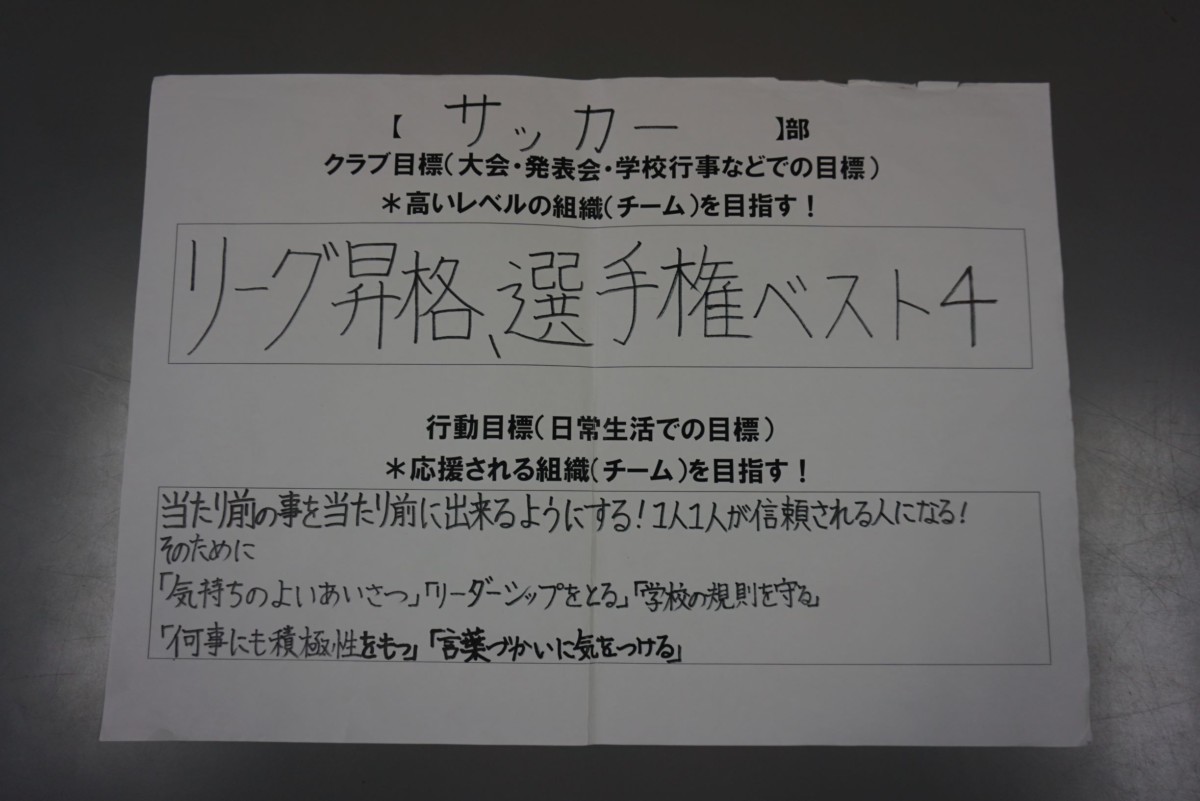 【 サッカー 】部
クラブ目標(大会・発表会・学校行事などでの目標)
＊高いレベルの組織(チーム)を目指す！
リーグ昇格、選手権ベスト4
行動目標(日常生活での目標)
＊応援される組織(チーム)を目指す！
当たり前の事を当たり前に出来るようにする！1人1人が信頼される人になる！
そのために
「気持ちのよいあいさつ」「リーダーシップをとる」「学校の規則を守る」
「何事にも積極性をもつ」「言葉づかいに気をつける」